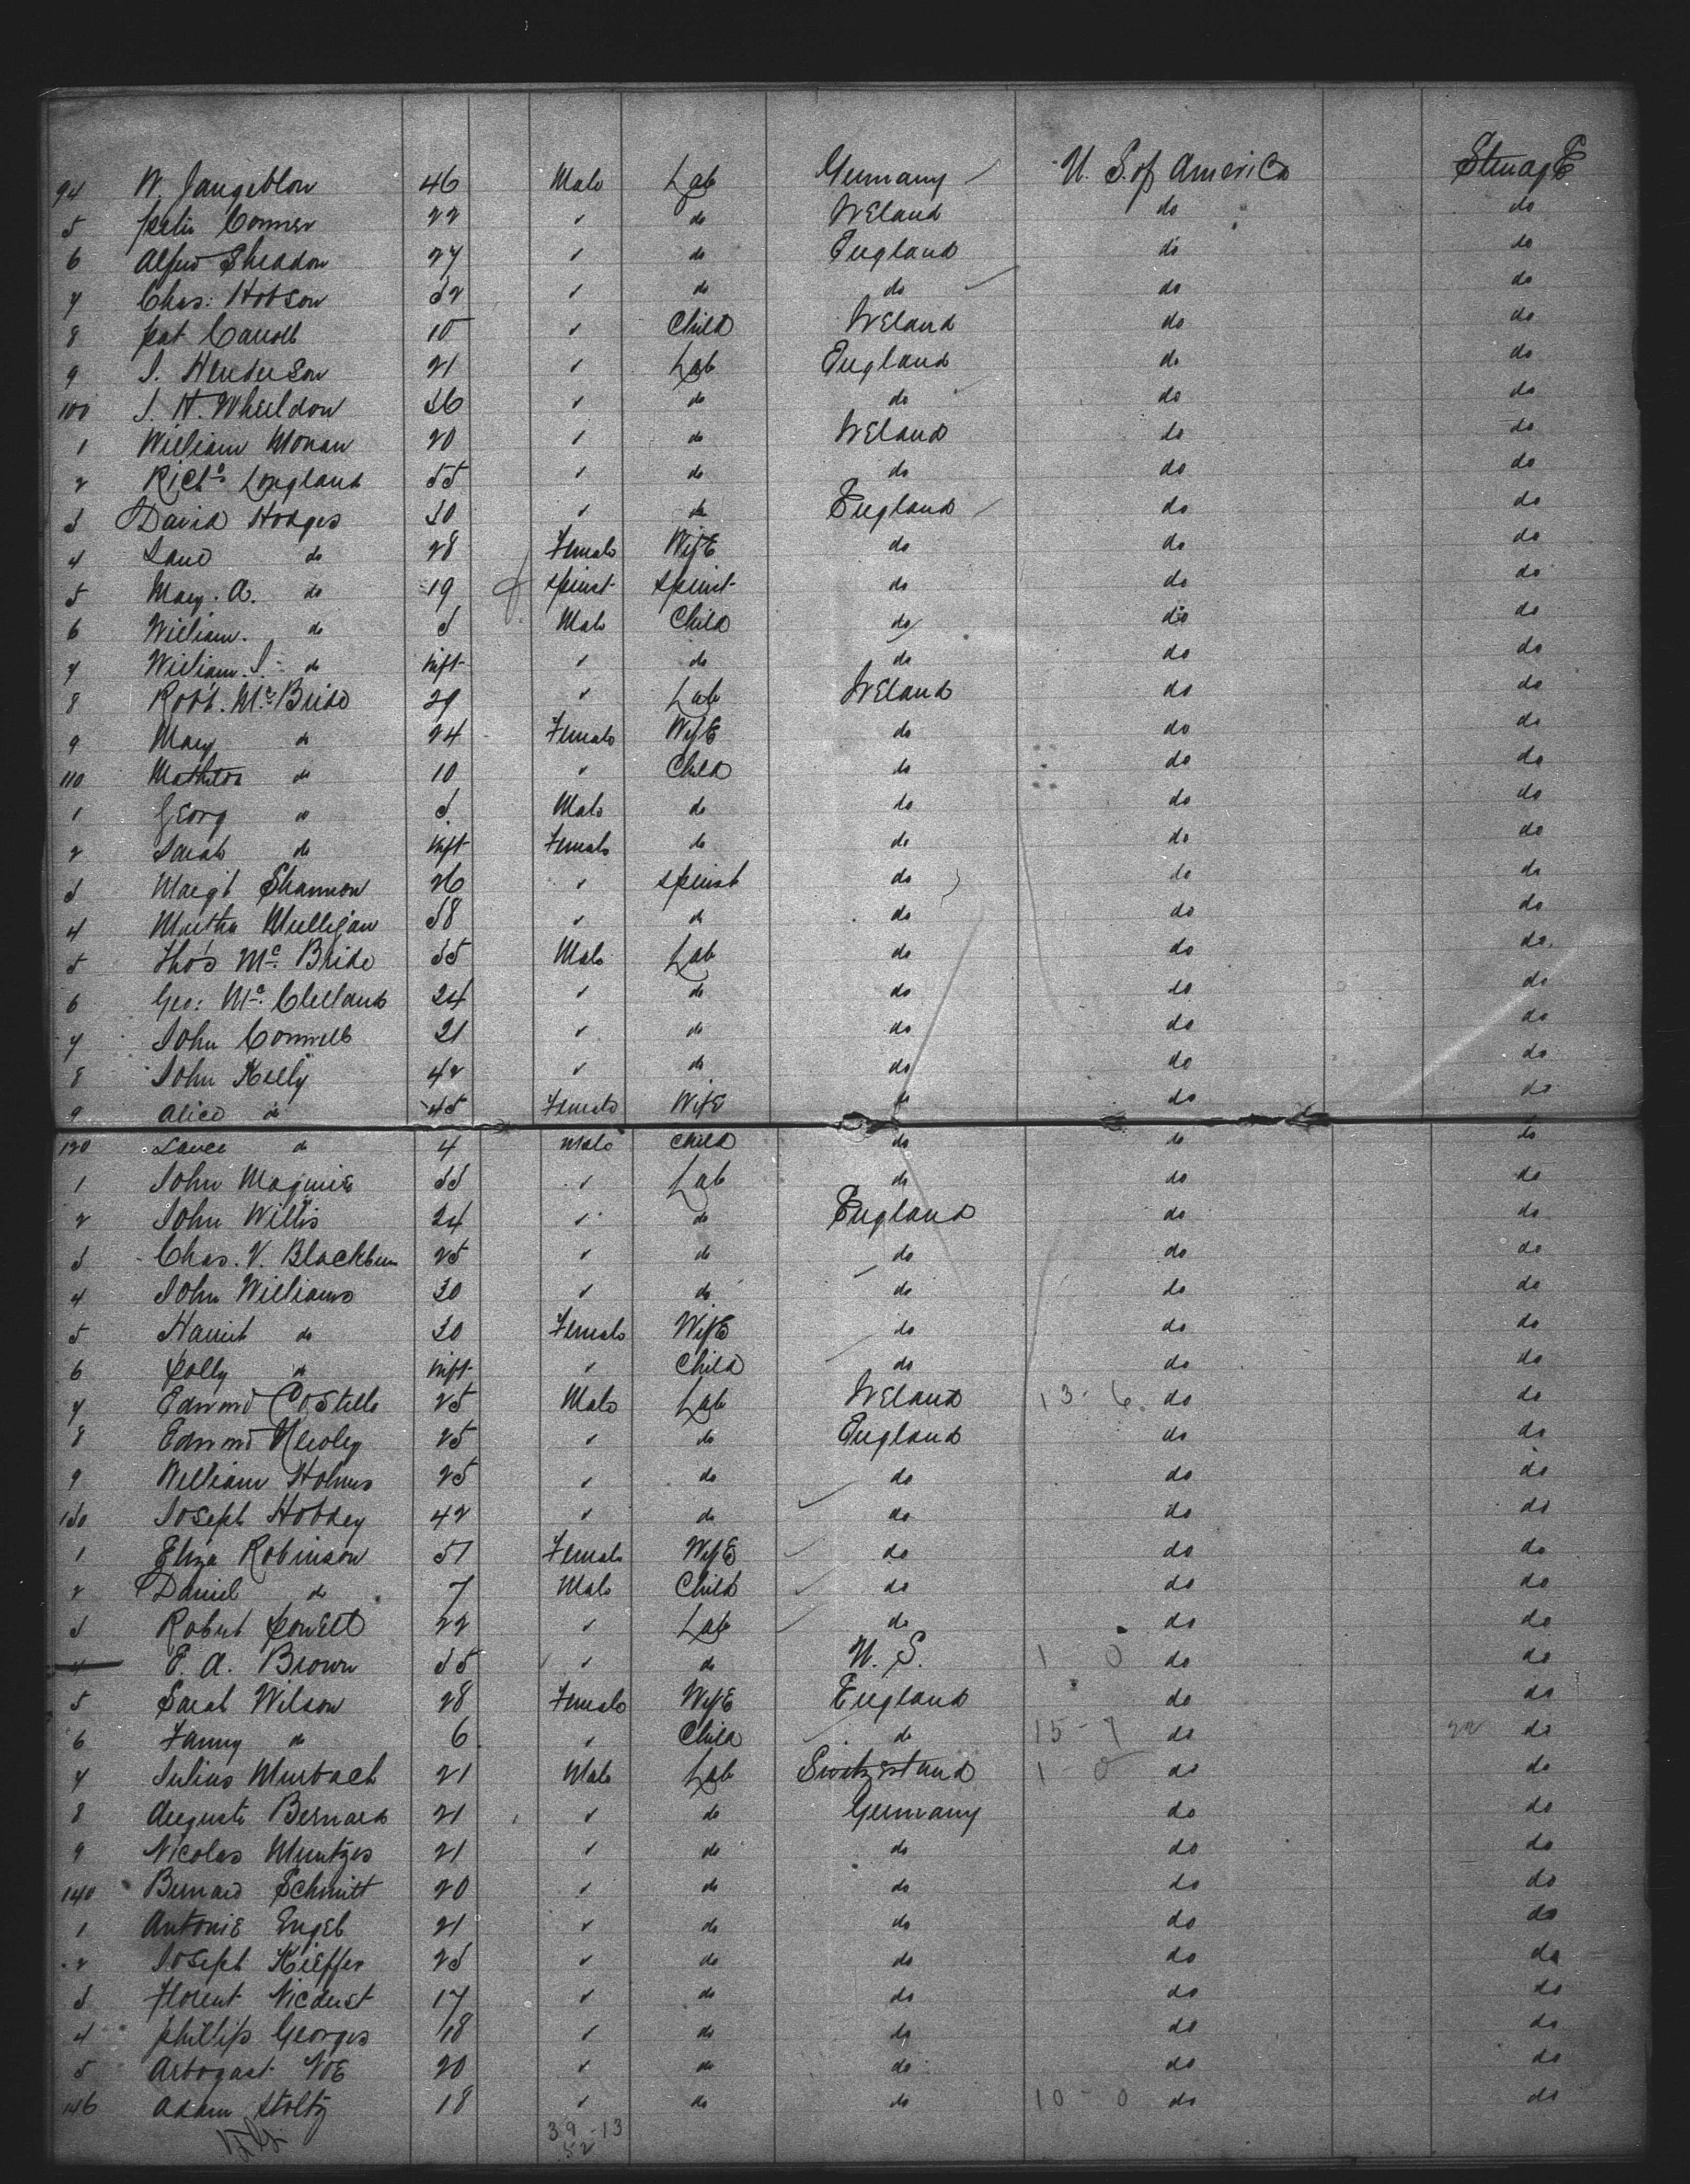 94 W. Jangeblow 46 Male Lab Germany U. S. of America Steerage
5 Conner 22 " do Ireland do do
6 Alfred Sheadon 27 " do England do do
7 Chas: Hobson 32 " do do do do
8 Pat Carroll 10 " Child Ireland do do
9 J. Henderson 21 " Lab England do do
100 J. H. Wheeldon 36 " do do do do
1 William Monan 20 " do Ireland do do
2 Richd Longland 55 " do do do do
3 David Hodges 30 " do England do do
4 Jane do 28 Female Wife do do do
5 Mary. A. do 19 Spinst Spinst do do do
6 William. do 3 Male Child do do do
7 William. J. do Inft " do do do do
8 Robt. McBride 29 " Lab Ireland do do
9 Mary do 24 Female Wife do do do
110 Mathilda do 10 " Child do do do
1 Georg do 3 Male do do do do
2 Sarah do Inft Female do do do do
3 Margt Shannon 26 " Spinst do do do
4 Martha Mulligan 38 " do do do do
5 Thos McBride 35 Male Lab do do do
6 Geo: McClelland 24 " do do do do
7 John Connell 21 " do do do do
8 John Kelly 42 " do do do do
9 Alice do 45 Female Wife do do do
120 do 4 Male Child do do do
1 John Maguire 33 " Lab do do do
2 John Willis 24 " do England do do
3 Chas. V. Blackburn 25 " do do do do
4 John Williams 30 " do do do do
5 Harriet do 30 Female Wife do do do
6 Polly do Inft " Child do do do
7 Edmond Costello 25 Male Lab Ireland 13-6 do do
8 Edmond 25 " do England do do
9 William Holmes 25 " do do do do
130 Joseph Hobdey 42 " do do do do
1 Eliza Robinson 51 Female Wife do do do
2 Daniel do 7 Male Child do do do
3 Robert Powell 22 " Lab do do do
4 E. A. Brown 35 " do U. S. 1 0 do do
5 Sarah Wilson 28 Female Wife England do do
6 Fanny do 6 " Child do 15-7 do 22 do
7 Julius Murbach 21 Male Lab Switzerland 1-0 do do
8 Auguste Bernard 21 " do Germany do do
9 Nicolas Muntzer 21 " do do do do
140 Bernard Schmitt 20 " do do do do
1 Antonie Engel 21 " do do do do
2 Joseph Kieffer 23 " do do do do
3 Florent 17 " do do do do
4 Phillip Georges 18 " do do do do
5 Arbogast Noe 20 " do do do do
146 Adam Stoltz 18 " do do 10-0 do do
39-13
52